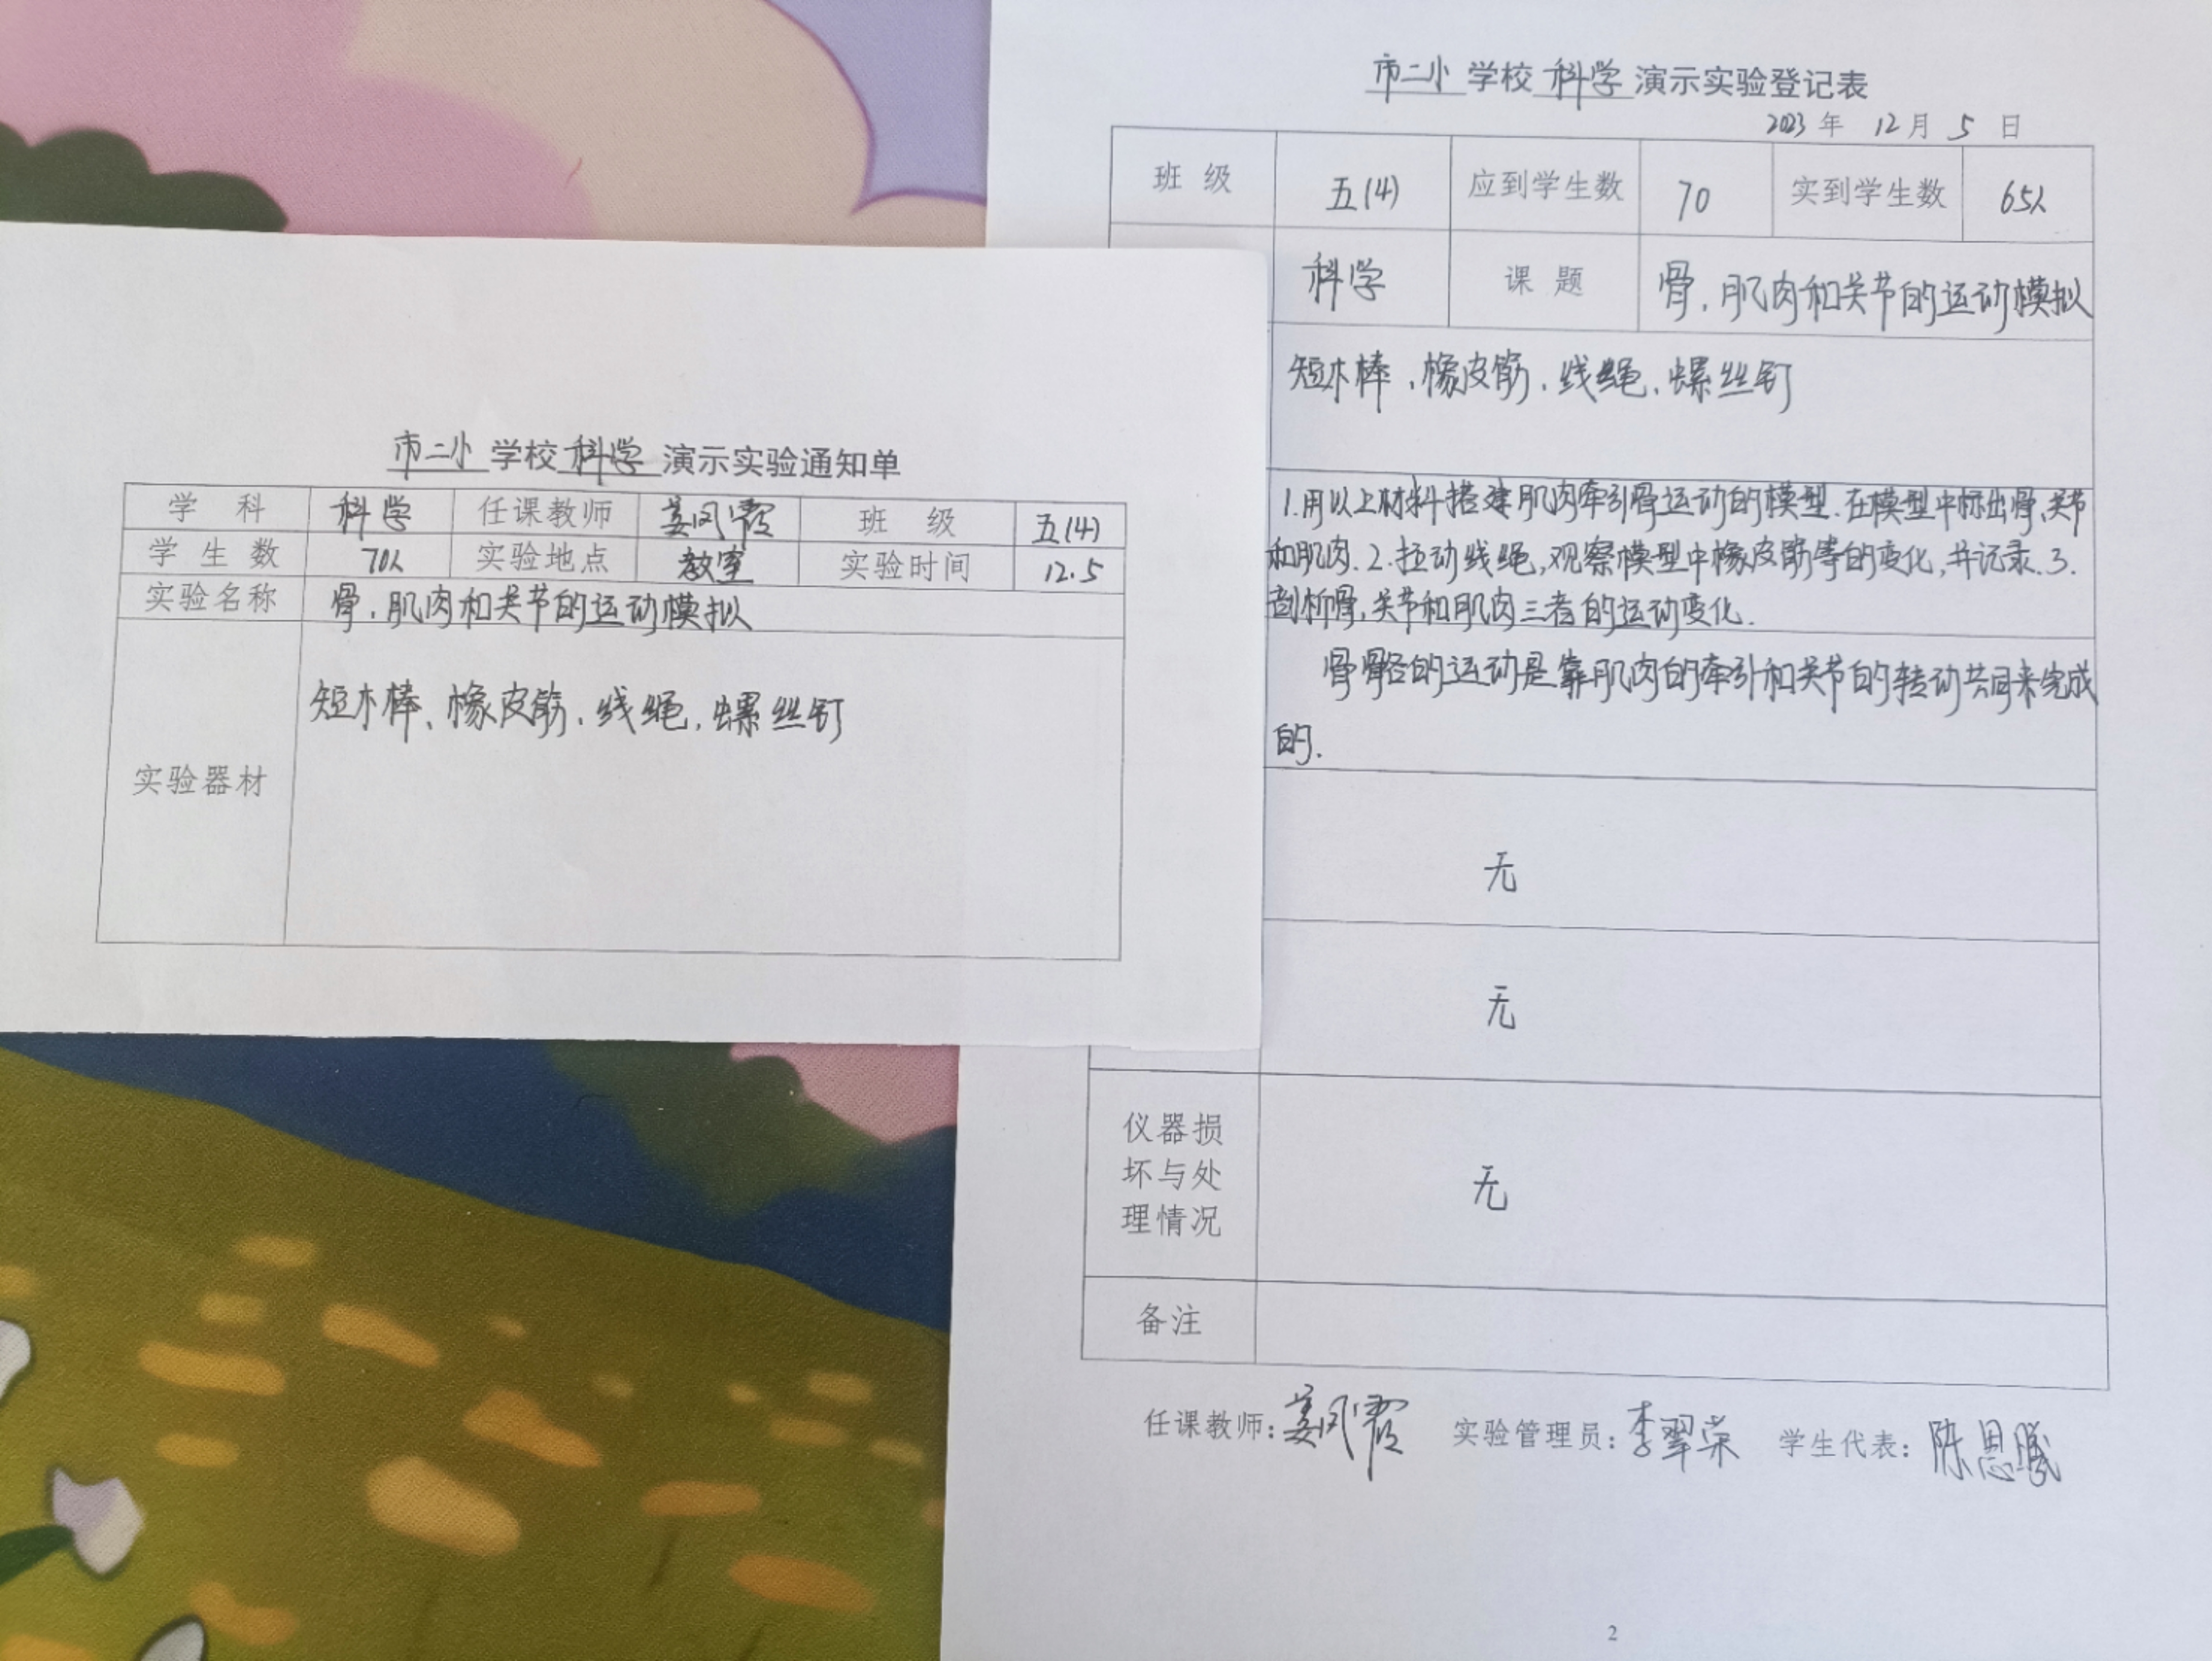 市二小学校科学演示实验通知单
学 科 科学 任课教师 姜凤霞 班 级 五(4)
学 生 数 70人 实验地点 教室 实验时间 12.5
实验名称 骨、肌肉和关节的运动模拟
实验器材 短木棒、橡皮筋、线绳、螺丝钉
市二小学校科学演示实验登记表
2023年 12月 5 日
班 级 五(4) 应到学生数 70 实到学生数 65人
科学 课 题 骨、肌肉和关节的运动模拟
短木棒、橡皮筋、线绳、螺丝钉
1.用以上材料搭建肌肉牵引骨运动的模型.在模型中标出骨,关节
和肌肉.2.拉动线绳,观察模型中橡皮筋等的变化,并记录.3.
剖析骨,关节和肌肉三者的运动变化.
骨骼的运动是靠肌肉的牵引和关节的转动共同来完成
的.
无
无
仪器损
坏与处
理情况
无
备注
任课教师:姜凤霞 实验管理员:李翠荣 学生代表:陈思曦
2